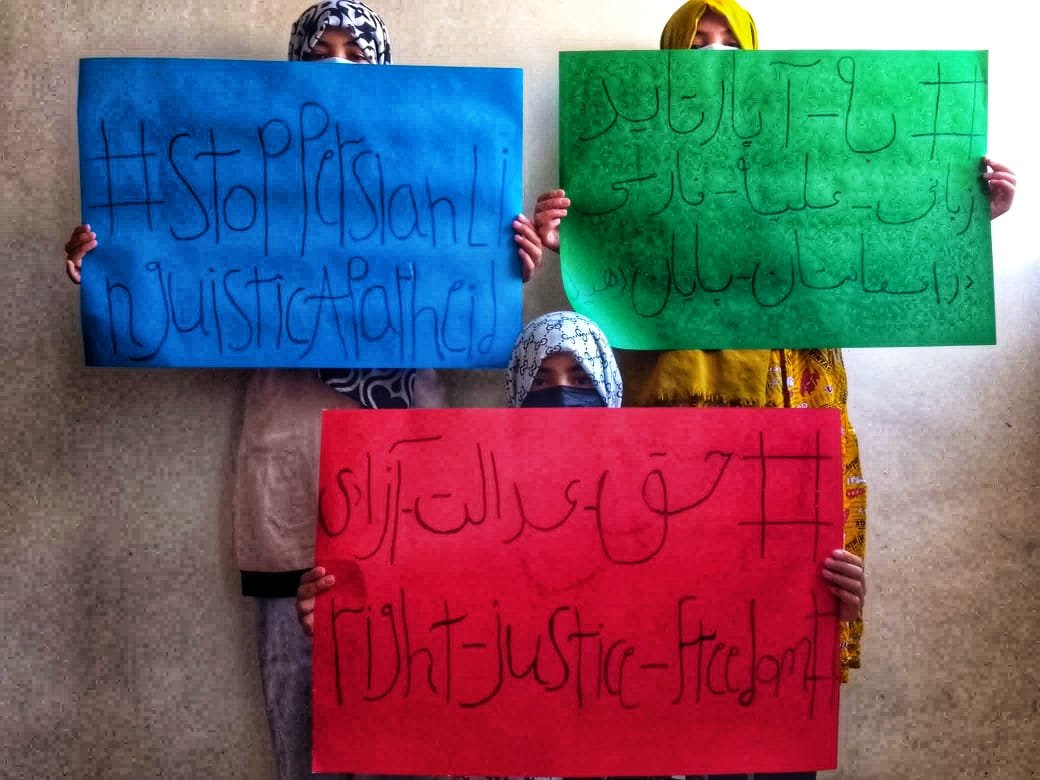 #StopPersianLi
nguisticApatheid
#به-آپارتاید
زبانی-علیه-فارسی
در افغانستان-پایان دهید
#حق-عدالت-آزادی
right-justice-freedom#